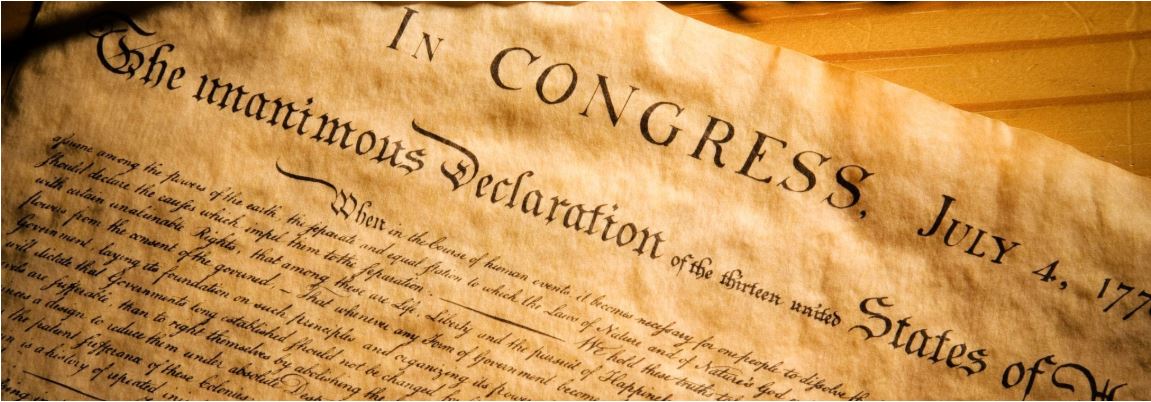 In CONGRESS, July 4, 177
The unanimous Declaration of the thirteen united States of
When in the Course of human events it becomes necessary for one people to dissolve the
assume among the powers of the earth, the separate and equal station to which the Laws of Nature and of Nature's God
should declare the causes which impel them to the separation. We hold these truths to
with certain unalienable Rights, that among these are Life, Liberty and the pursuit of Happine
from the consent of the governed, — That whenever any Form of Government become
Government, laying its foundation on such principles and organizing its powers
will dictate that Governments long established should not be changed for
are sufferable, than to right themselves by abolishing the
a design to reduce them under absolute Des
the patient sufferance of these Colonies
is a history of repeated in